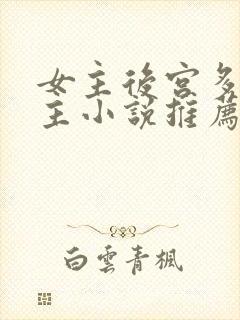 女主後宮多
主小說推薦
白雲青楓